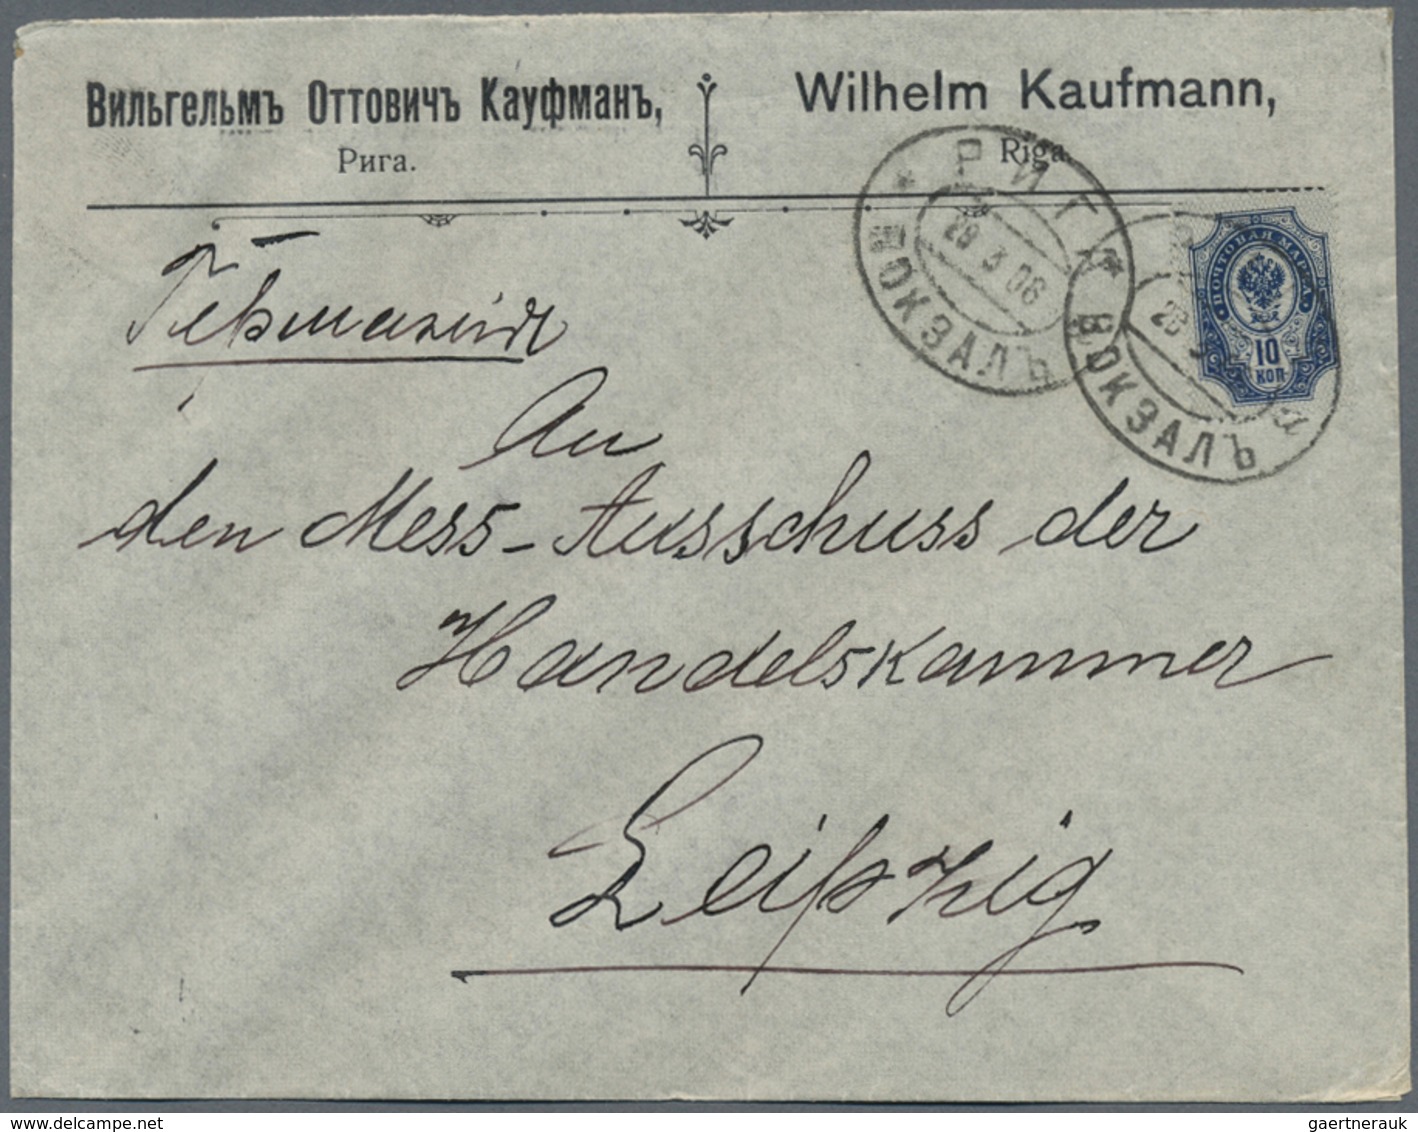 Вильгельмъ Оттовичъ Кауфманъ,
Рига.
Wilhelm Kaufmann,
Riga.
РИГА
28 3 06
ВОКЗАЛЪ
28 3
ВОКЗАЛЪ
a
ПОЧТОВАЯ МАРКА
10
КОП
Германія
An
den Mess-Ausschuss der
Handelskammer
Leipzig
gaertnerauk @ delcampe.net